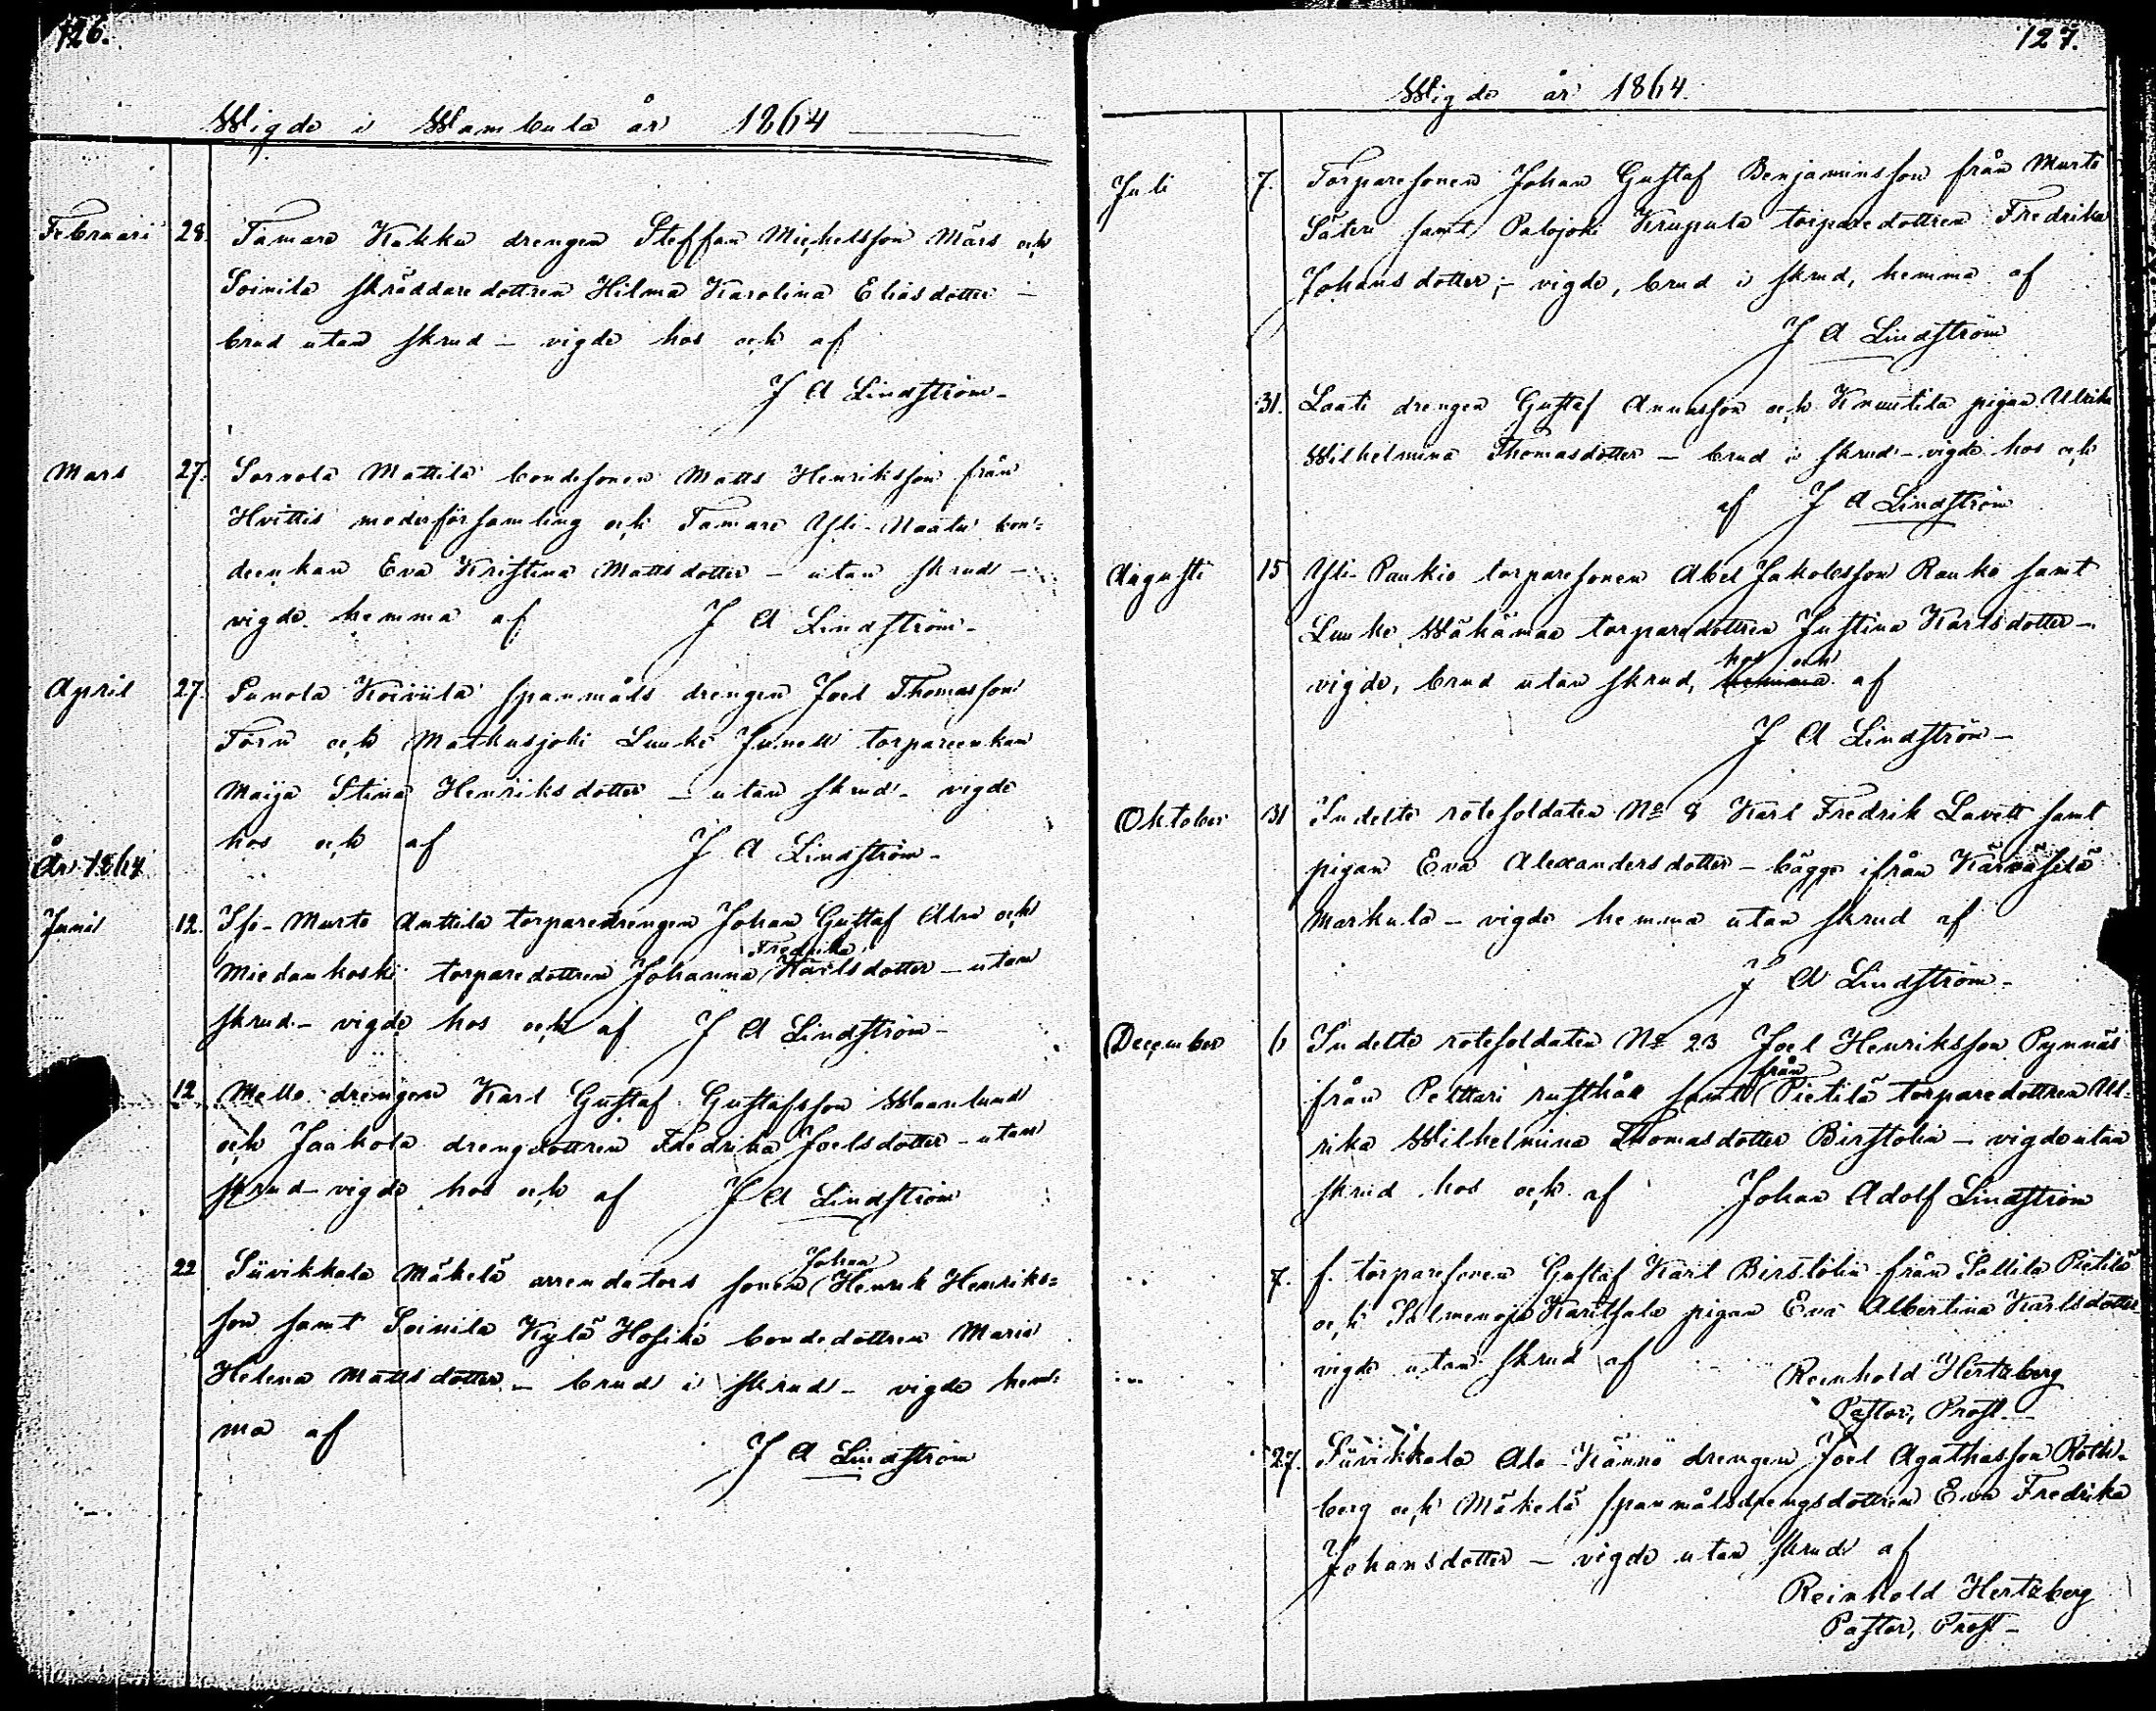 126.
Wigde i Wambula år 1864
Februari 28. Tamare Kukku drengen Steffan Michelsson Mårs och
Soinila skräddaredottren Hilma Karolina Eliasdotter –
brud utan skrud – vigde hos och af
J A Lindström –
Mars 27. Sorvola Mattila bondesonen Matts Henriksson från
Hvittis moderförsamling och Tamare Yli-Naatu bon=
deenkan Eva Kristina Mattsdotter – utan skrud –
vigde hemma af J A Lindström –
April 27. Punola Koivula spanmåls drengen Joel Thomasson
Törn och Matkusjoki Luuke Junell torpareenkan
Maija Stina Henriksdotter – utan skrud – vigde
hos och af J A Lindström –
År 1864
Junii 12. Iso-Murto Anttila torparedrengen Johan Gustaf och
Fredrika
Miedankoski torparedottren Johanna Karlsdotter – utan
skrud – vigde hos och af J A Lindström –
12 Mello drengen Karl Gustaf Gustafsson Waanlund
och Jaakola drengdottren Fredrika Joelsdotter – utan
skrud – vigde hos och af J A Lindström
Johan
22 Siivikkala Mäkelä arrendators sonen Henrik Henriks=
son samt Soinila Kylä Hosike bondedottren Maria
Helena Mattsdotter – brud i skrud – vigde hem=
ma af
J A Lindström
127.
Wigde år 1864.
Juli 7. Torparesonen Johan Gustaf Benjaminsson från Murto
Säteri samt Palojoki Krupula torparedottren Fredrika
Johansdotter; – vigde, brud i skrud, hemma af
J A Lindström
31. Laati drengen Gustaf Annasson och Knuutila pigan Ulrika
Wilhelmina Thomasdotter – brud i skrud – vigde hos och
af J A Lindström
Augusti 15 Yli-Paukio torparesonen Abel Jakobsson Rauko samt
Luuke Wähämaa torparedottren Justina Karlsdotter –
hos och
vigde, brud utan skrud, hemma af
J A Lindström –
Oktober 31 Indelte rotesoldaten No 8 Karl Fredrik Lavett samt
pigan Eva Alexandersdotter – bägge ifrån Käräsilä
Markula – vigde hemma utan skrud af
J A Lindström –
December 6 Indelte rotesoldaten No 23 Joel Henriksson Pynnäs
från
från Pelttari rusthåll samt Pietilä torparedottren Ul=
rika Wilhelmina Thomasdotter Birstolin – vigde utan
skrud hos och af Johan Adolf Lindström
7. f. torparesonen Gustaf Karl Birstolin från Sallila Pietilä
och Salmenoja Karitsala pigan Eva Albertina Karlsdotter
vigde utan skrud af Reinhold Hertzberg
Pastor, Prost –
27. Siivikkala Ala-Kännö drengen Joel Agathasson Roth=
berg och Mäkelä spanmålsdrengsdottren Eva Fredrika
Johansdotter – vigde utan skrud af
Reinhold Hertzberg
Pastor, Prost –